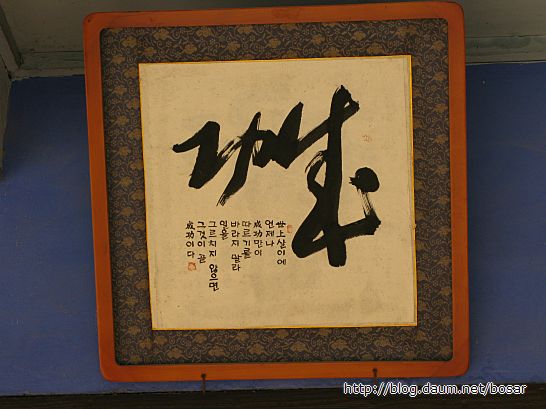 成功
世上살이에
언제나
成功만이
따르기를
바라지 말라
일을
그르치지 않으면
그것이 곧
成功이다
http://blog.daum.net/bosar